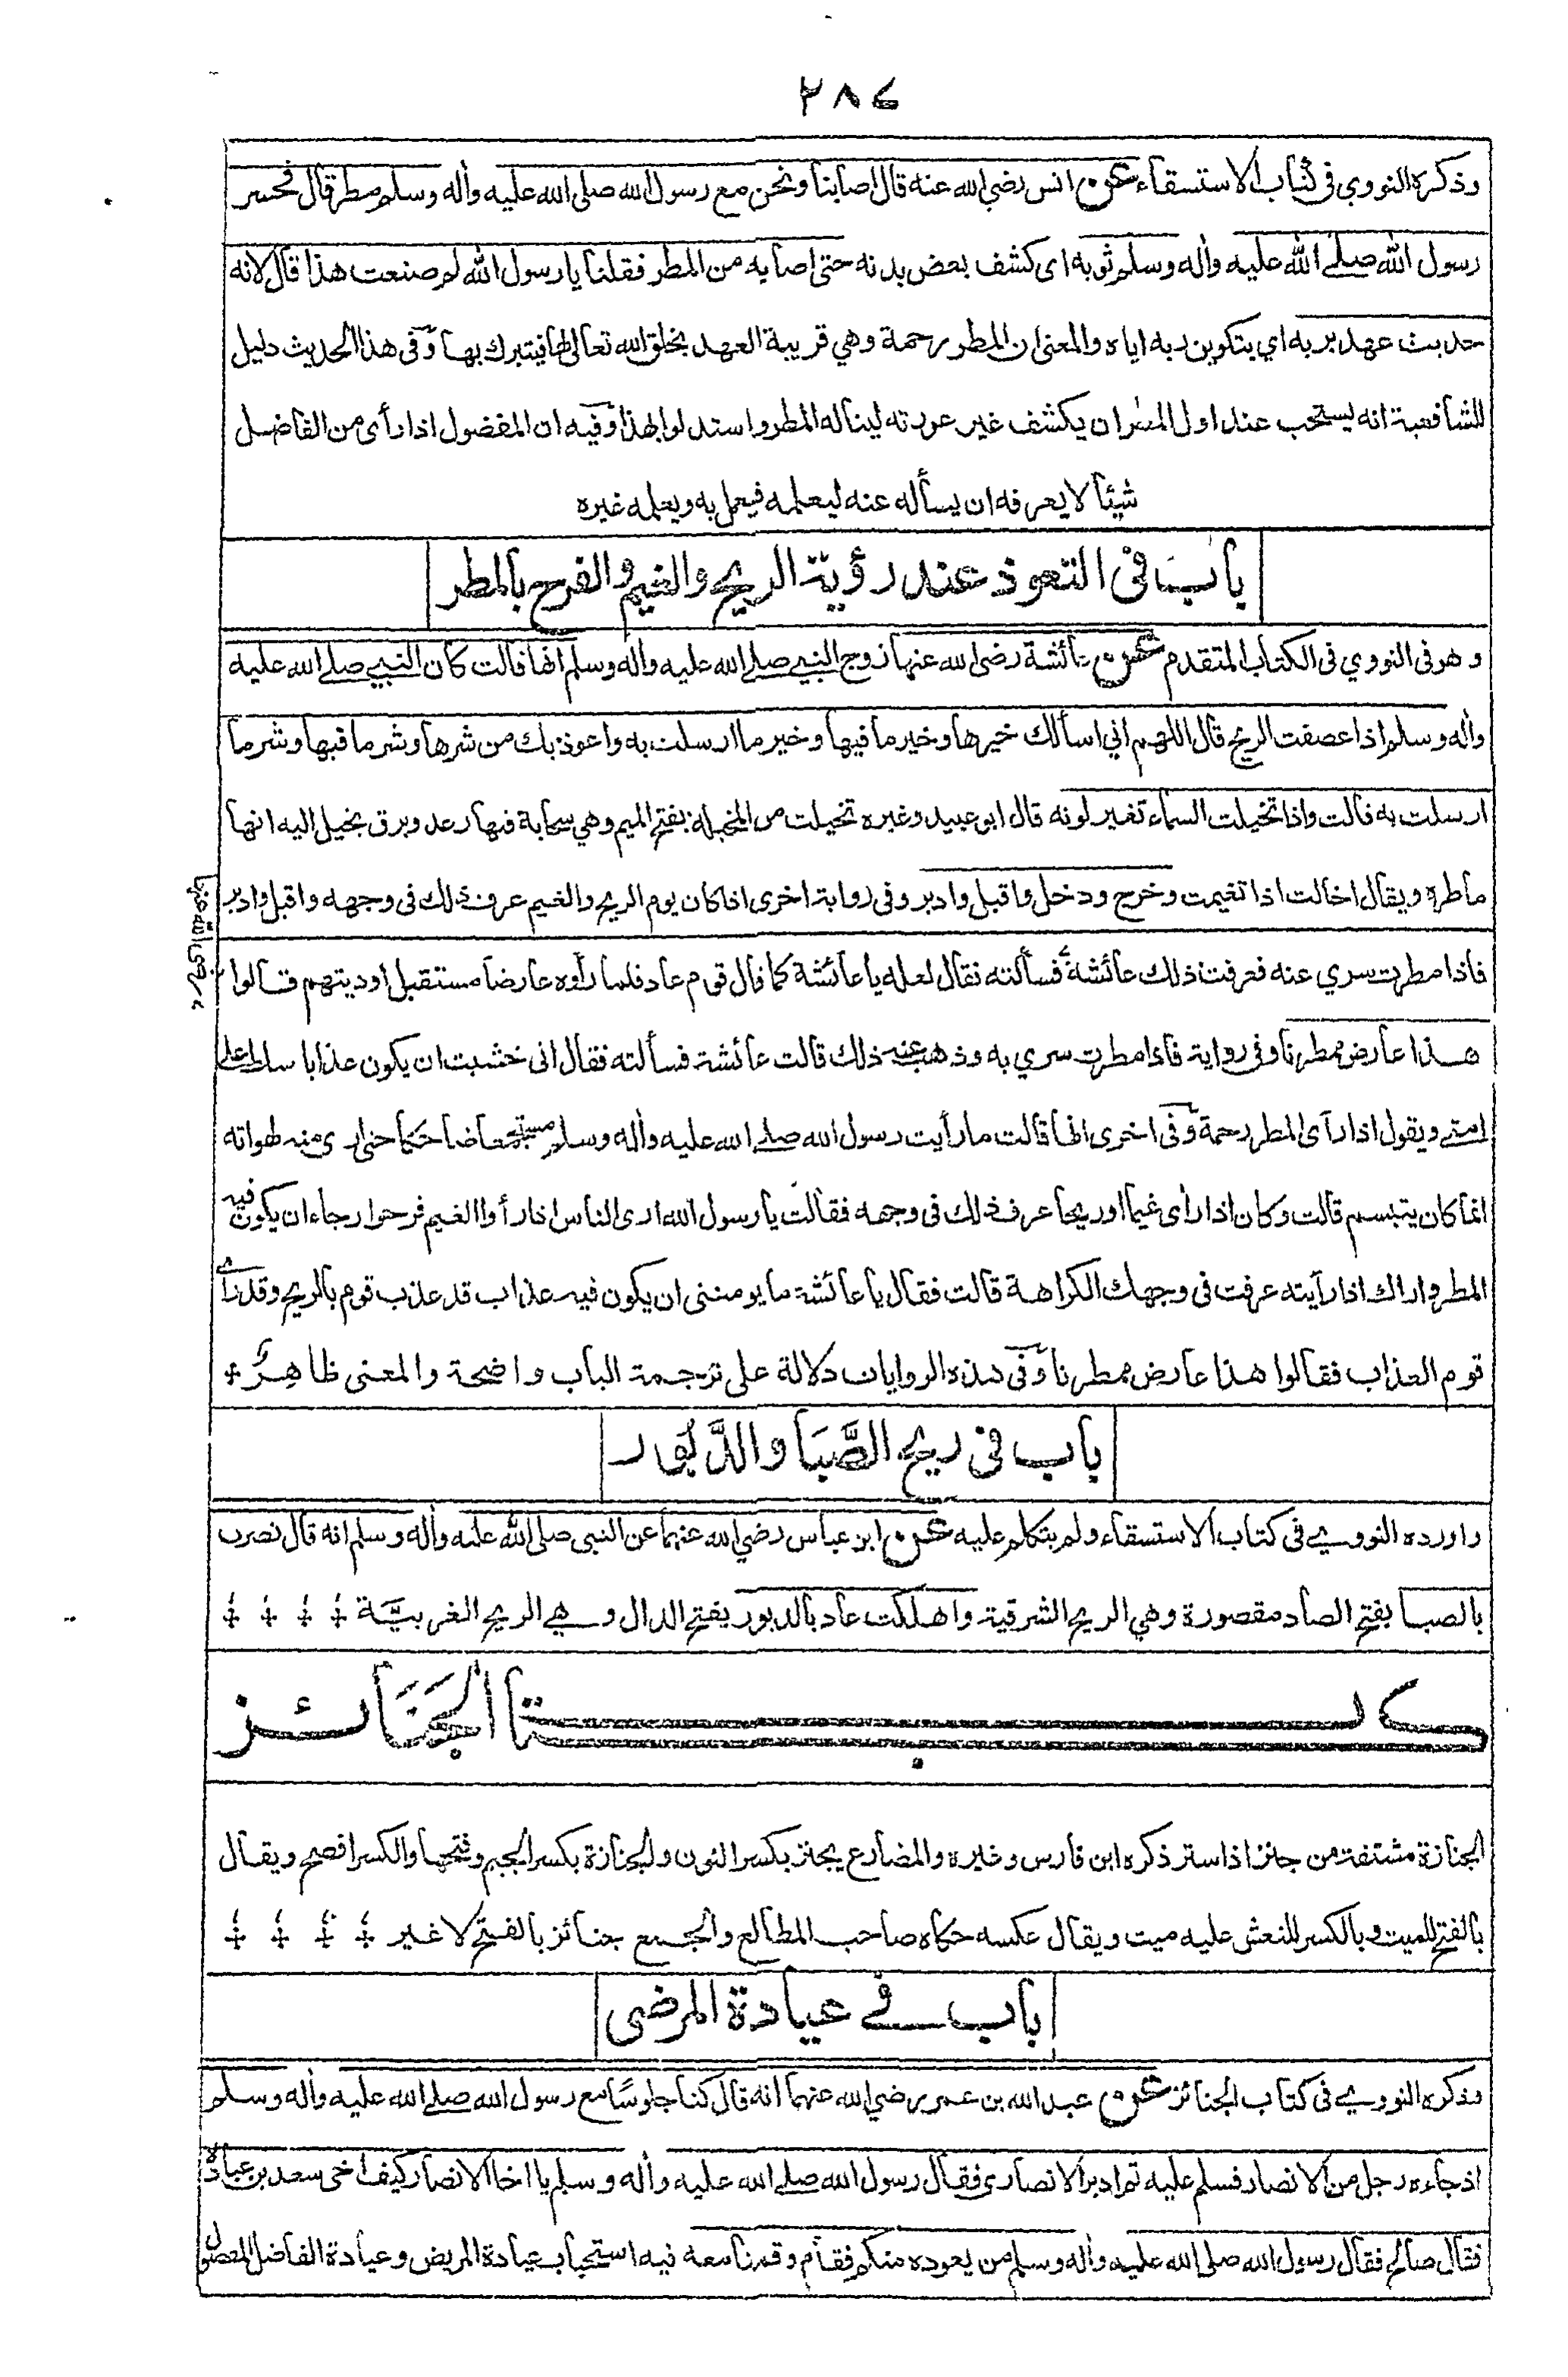 ٢٨٤
وذكره النووي فى كتاب الاستسقاء عن انس رضي الله عنه قال اصابنا ونحن مع رسول الله صلى الله عليه واله وسلم مطر قال فحسر
رسول الله صلے الله عليه واله وسلم ثوبه اى كشف بعض بدنه حتى اصابه من المطر فقلنا يا رسول الله لم صنعت هذا قال لانه
حديث عهد بربه اي بتكوين ربه اياه والمعنى ان المطر رحمة وهي قريبة العهد بخلق الله تعالى لها فيتبرك بها وفى هذا الحديث دليل
للشافعية انه يستحب عند اول المطر ان يكشف غير عورته ليناله المطر واستدلوا بهذا وفيه ان المفضول اذا رأى من الفاضل
شيئا لا يعرفه ان يسأله عنه ليعلمه فيعمل به ويعلمه غيره
باب فى التعوذ عند رؤية الريح والغيم والفرح بالمطر
وهو فى النووي فى الكتاب المتقدم عن عائشة رضى الله عنها زوج النبي صلے الله عليه واله وسلم انها قالت كان النبي صلے الله عليه
واله وسلم اذا عصفت الريح قال اللهم اني اسألك خيرها وخير ما فيها وخير ما ارسلت به واعوذ بك من شرها وشر ما فيها وشر ما
ارسلت به قالت واذا تخيلت السماء تغير لونه قال ابو عبيد وغيره تخيلت من المخيلة بفتح الميم وهي سحابة فيها رعد وبرق يخيل اليه انها
ماطرة ويقال اخالت اذا تغيمت وخرج ودخل واقبل وادبر وفى رواية اخرى اذا كان يوم الريح والغيم عرف ذلك فى وجهه واقبل وادبر
فاذا مطرت سري عنه فعرفت ذلك عائشة فسألته فقال لعله يا عائشة كما قال قوم عاد فلما رأوه عارضا مستقبل اوديتهم قالوا
رضى الله عنها
هذا عارض ممطرنا وفى رواية فاذا مطرت سري به وذهب عنه ذلك قالت عائشة فسألته فقال انى خشيت ان يكون عذابا سلط على
امتے ويقول اذا رآى المطر رحمة وفى اخرى انها قالت ما رأيت رسول الله صلے الله عليه واله وسلم مستجمعا ضاحكا حتى ارى منه لهواته
انما كان يتبسم قالت وكان اذا رأى غيما او ريحا عرف ذلك فى وجهه فقالت يا رسول الله ارى الناس اذا رأوا الغيم فرحوا رجاء ان يكون فيه
المطر واراك اذا رأيته عرفت فى وجهك الكراهة قالت فقال يا عائشة ما يومننى ان يكون فيه عذاب قد عذب قوم بالريح وقد رأى
قوم العذاب فقالوا هذا عارض ممطرنا وفى هذه الروايات دلالة على ترجمة الباب واضحة والمعنى ظاهر
باب فى ريح الصَّبَا والدَّبُور
واورده النووي فى كتاب الاستسقاء ولم يتكلم عليه عن ابن عباس رضي الله عنهما عن النبى صلى الله عليه واله وسلم انه قال نصرت
بالصبا بفتح الصاد مقصورة وهي الريح الشرقية واهلكت عاد بالدبور بفتح الدال وهي الريح الغربيَّة
كتاب الجَنَائز
الجنازة مشتقة من جنز اذا ستر ذكره ابن فارس وغيره والمضارع يجنز بكسر النون والجنازة بكسر الجيم وفتحها والكسر افصح ويقال
بالفتح للميت وبالكسر للنعش عليه ميت ويقال عكسه حكاه صاحب المطالع والجمع جنائز بالفتح لا غير
باب فے عيادة المرضى
وذكره النووي فى كتاب الجنائز عن عبد الله بن عمر رضي الله عنهما انه قال كنا جلوسًا مع رسول الله صلے الله عليه واله وسلم
اذ جاءه رجل من الانصار فسلم عليه ثم ادبر الانصارى فقال رسول الله صلے الله عليه واله وسلم يا اخا الانصار كيف اخى سعد بن عبادة
فقال صالح فقال رسول الله صلى الله عليه واله وسلم من يعوده منكم فقام وقمنا معه فيه استحباب عيادة المريض وعيادة الفاضل المفضول